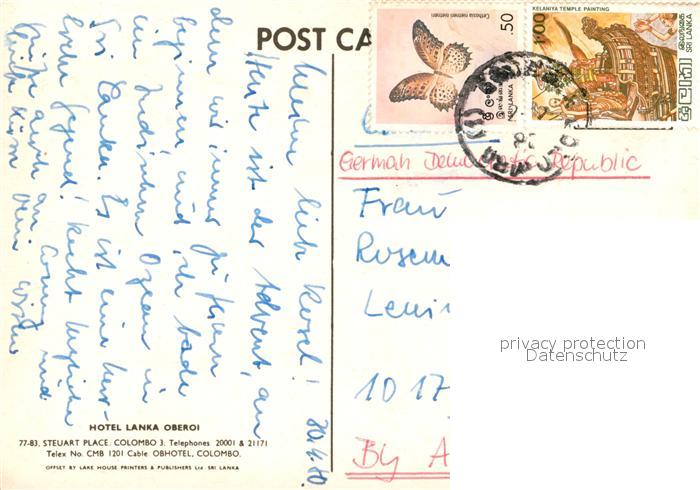 POST CA
Cethosia nietneri nietneri
.50
ශ්‍රී ලංකා
இலங்கை
SRI LANKA
KELANIYA TEMPLE PAINTING
1.00
ශ්‍රී ලංකා
இலங்கை
SRI LANKA
German Democratic Republic
Frau
Rosem
Lenin
1017
By A
Meine liebe Rosel!
Heute ist der Advent, an
dem wir immer zu feiern
beginnen und ich bade
im Indischen Ozean in
Sri Lanka. Es ist eine herr-
liche Gegend! Recht herzliche
Grüße auch an Conny und
HOTEL LANKA OBEROI
77-83, STEUART PLACE, COLOMBO 3. Telephones 20001 & 21171
Telex No. CMB 1201 Cable: OBHOTEL, COLOMBO.
OFFSET BY LAKE HOUSE PRINTERS & PUBLISHERS Ltd · SRI LANKA
privacy protection
Datenschutz